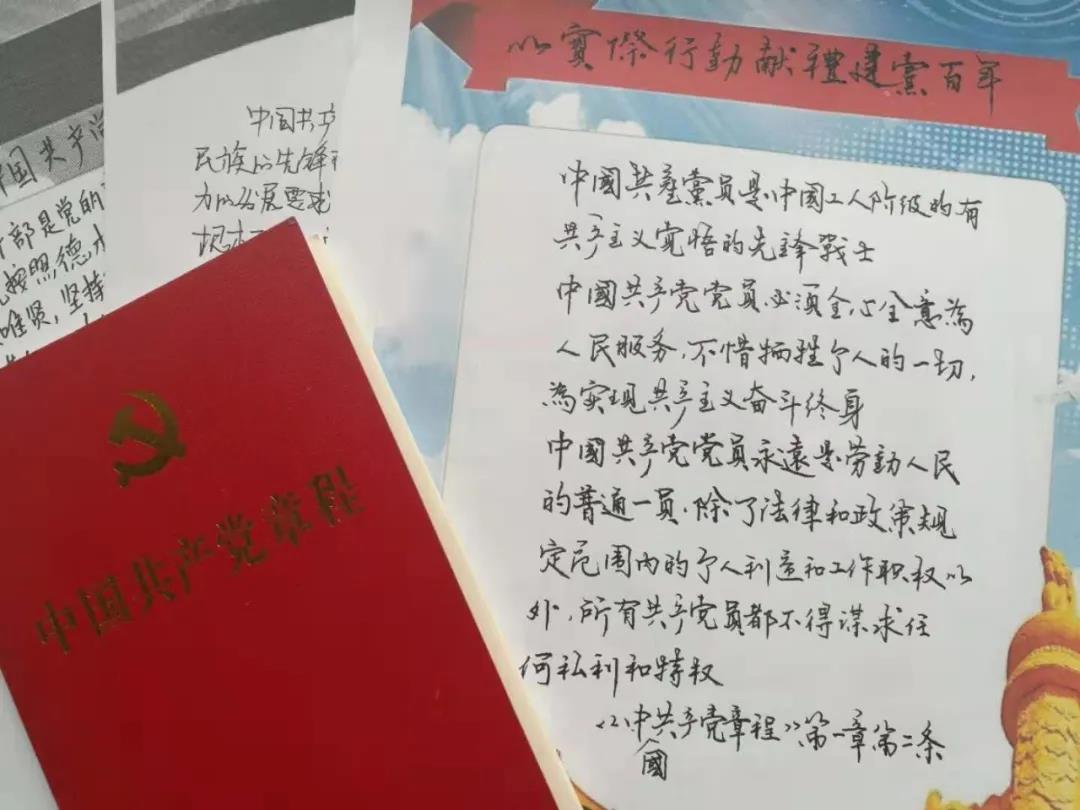 国共产党
部是党的
按照德、才
唯贤,坚持
中国共产
民族的先锋
力的发展要求
以實際行動献禮建黨百年
中國共產黨員是中國工人阶级的有
共产主义覚悟的先鋒戰士
中國共产党党员必须全心全意為
人民服务,不惜牺牲个人的一切,
為实现共产主义奋斗终身
中國共产党党员永遠是劳動人民
的普通一員,除了法律和政策规
定范围内的个人利益和工作职权以
外,所有共产党员都不得谋求任
何私利和特权
《中國共产党章程》第一章第二条
中国共产党章程